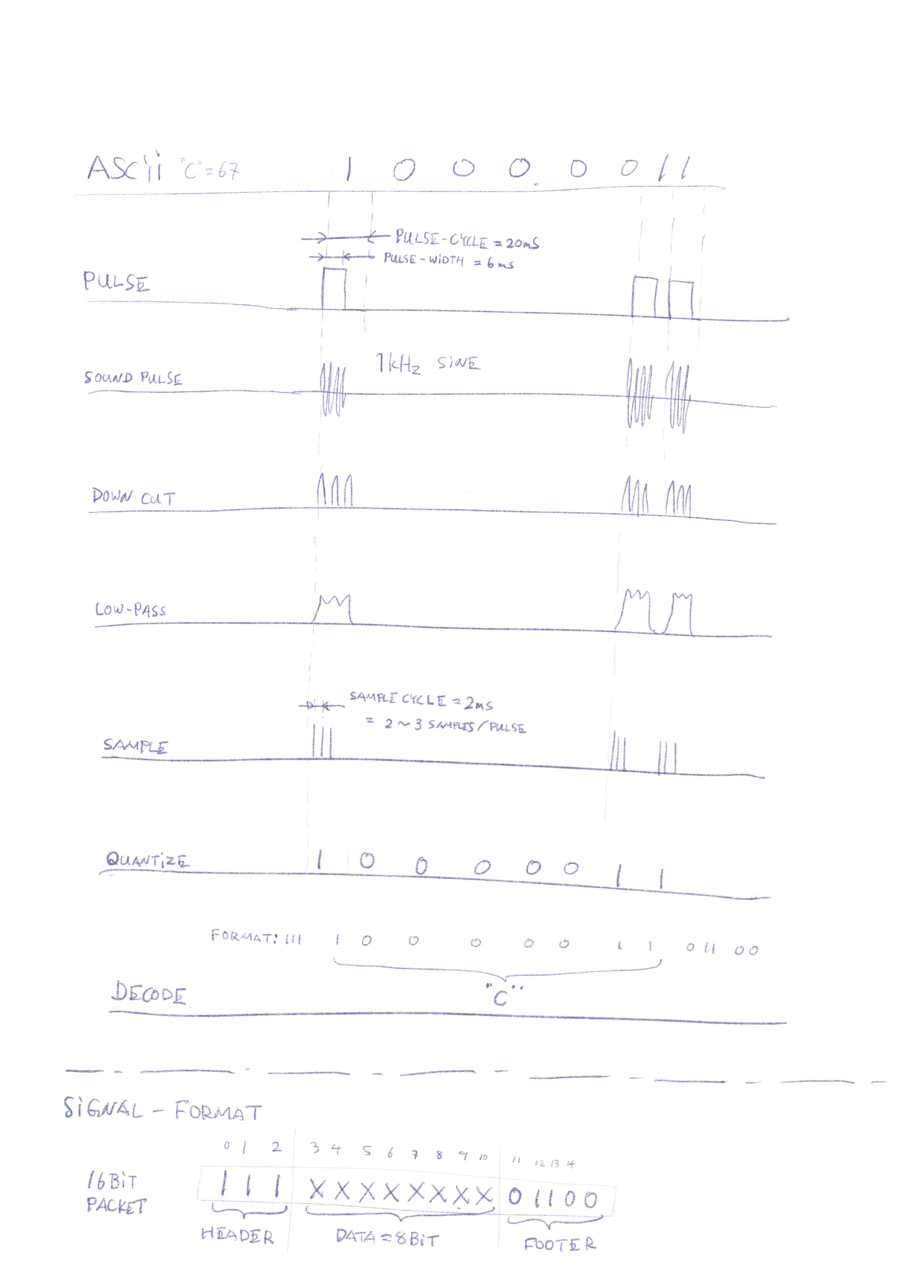 ASCii "C"=67 1 0 0 0 0 0 1 1
PULSE-CYCLE = 20mS
PULSE-WIDTH = 6mS
PULSE
1kHz SiNE
SOUND PULSE
DOWN CUT
LOW-PASS
SAMPLE CYCLE = 2mS
= 2 ~ 3 SAMPLES / PULSE
SAMPLE
QUANTiZE 1 0 0 0 0 0 1 1
FORMAT: 111 1 0 0 0 0 0 1 1 0 11 00
"C"
DECODE
SiGNAL - FORMAT
0 1 2 3 4 5 6 7 8 9 10 11 12 13 14
16BiT
PACKET
1 1 1 X X X X X X X X 0 1 1 0 0
HEADER DATA = 8BiT FOOTER